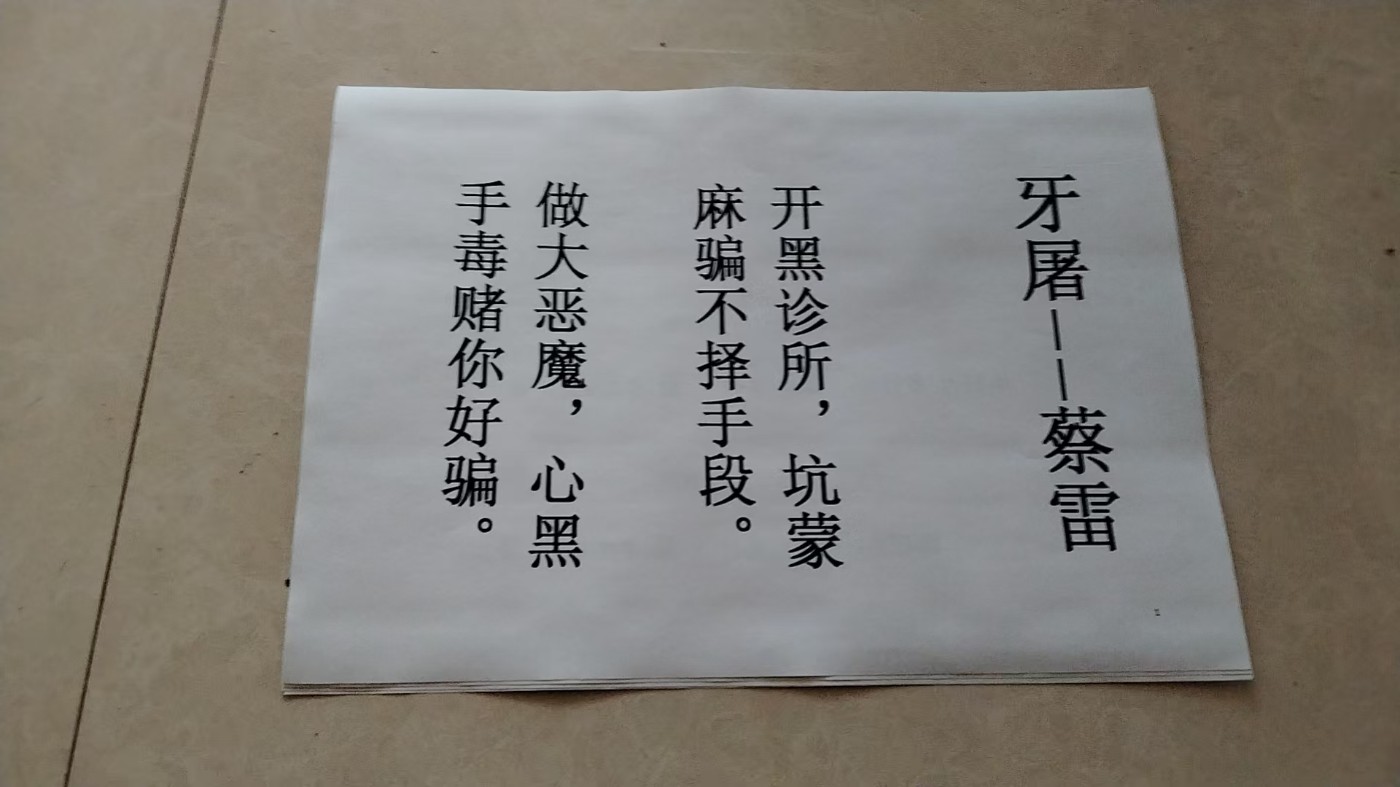 牙屠——蔡雷
开黑诊所，坑蒙
麻骗不择手段。
做大恶魔，心黑
手毒赌你好骗。